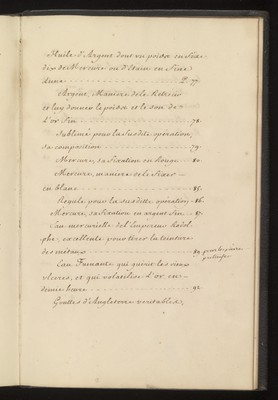 Huile d'Argent dont un poisse en fixe
dix de Mercure ou d'Etain en Fine
Lune P. 77.
Argent, Maniere de le Retrecir
et luy donner le poisse et le son de
L'or fin 78.
Sublimé pour la susditte operation,
sa composition 79.
Mercure, sa fixation en Rouge 80.
Mercure, maniere de le Fixer
en blanc 85.
Regale pour la susditte operation 86.
Mercure, sa fixation en argent fin 87.
Eau mercurielle de l'Empereur Rodol-
phe, excellente pour tirer la teinture
des métaux 89
Eau Fumante qui guerit les vieux
ulceres, et qui volatilise L'or en
demie heure 92
Gouttes d'Angleterre veritables,